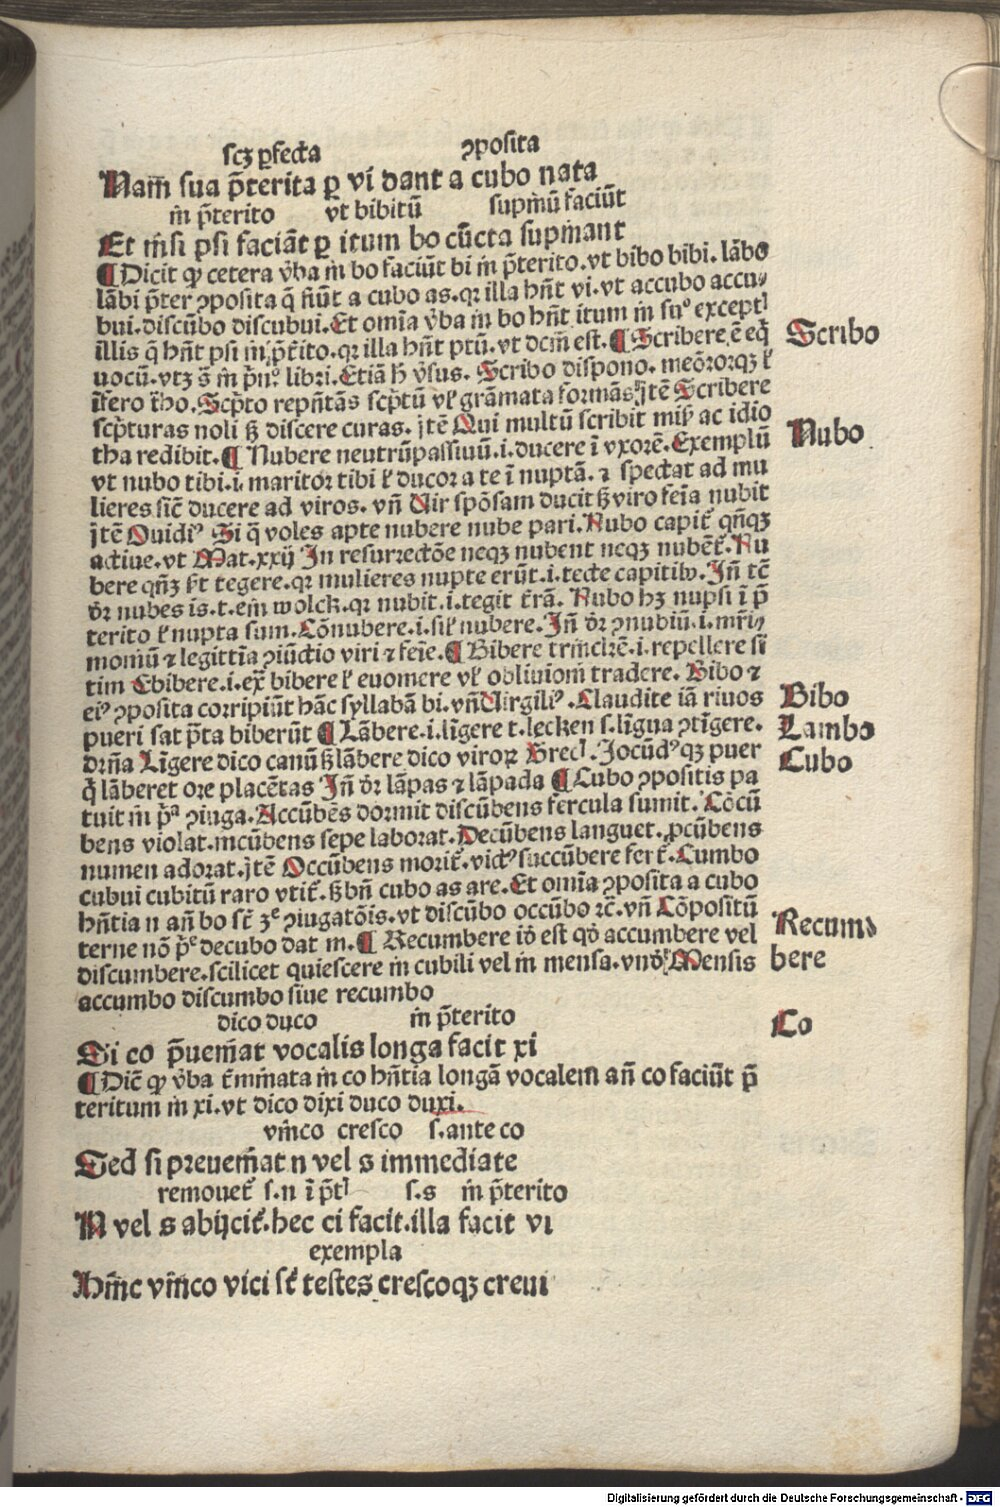 scꝫ ꝑfecta ꝯposita
Nam̄ sua p̄terita ꝑ vi dant a cubo nata
in p̄terito vt bibitū supinū faciūt
Et nisi psi faciāt ꝑ itum bo cūcta supinant
¶ Dicit ꝙ cetera v̓ba in bo faciūt bi in p̄terito.vt bibo bibi. lābo
lābi p̄ter ꝯposita q̄ fiūt a cubo as.qꝛ illa hn̄t vi.vt accubo accu⸗
bui.discūbo discubui.Et omīa v̓ba in bo hn̄t itum in suº except
illis q̄ hn̄t psi in p̄t̓ito.qꝛ illa hn̄t ptū.vt dcm̄ est.¶ Scribere ē eq̄
Scribo
uocū.vtꝫ s̄ in p̄n̄º libri.Etiā h̓ v̓sus. Scribo dispono. meōrorqꝫ ł
īfero t̄ho.Scp̄to repn̄tās scp̄tū vł grāmata formās. jtē Scribere
scp̄turas noli ꝫ discere curas. jtē Qui multū scribit mis̓ ac idio
tha redibit.¶ Nubere neutrūpassiuū.i.ducere ī vxorē.Exemplū
Nubo
vt nubo tibi.i.maritor tibi ł ducor a te ī nuptā. ⁊ spectat ad mu
lieres sic̄ ducere ad viros. vn̄ Uir spōsam ducit ꝫ viro feīa nubit
jtē Ouidiꝰ Si q̄ voles apte nubere nube pari. Nubo capit̓ qn̄qꝫ
actiue.vt Mat.xxij In resurrectōe neqꝫ nubent neqꝫ nubēt̓. Nu
bere qn̄ꝫ s̓t tegere.qꝛ mulieres nupte erūt.i.tecte capitib.Jn̄ tē
dr̄ nubes is.t.em̄ wolck.qꝛ nubit.i.tegit t̄rā. Nubo hꝫ nupsi ī p̄
terito ł nupta sum.Cōnubere.i.sil̓ nubere.Jn̄ dr̄ ꝯnubiū.i.mr̄i⸗
moniū ⁊ legittīa ꝯiūctio viri ⁊ feīe.¶ Bibere trinckē.i.repellere si
tim Ebibere.i.ex̄ bibere ł euomere vł obliuioni tradere. Bibo ⁊
eiꝰ ꝯposita corripiūt hāc syllabā bi.vn̄ Uirgiliꝰ.Claudite iā riuos
Bibo
pueri sat p̄ta biberūt ¶ Lābere.i.līgere t.lecken s.līgua ꝯtīgere.
Lambo
dr̄na Līgere dico canū ꝫ lābere dico viroꝝ Grecl̓. Jocūdꝰqꝫ puer
Cubo
q̄ lāberet ore placētas Jn̄ dr̄ lāpas ⁊ lāpada ¶ Cubo ꝯpositis pa
tuit in p̄ᵃ ꝯiuga.Accūbēs dormit discūbens fercula sumit. Cōcū
bens violat.incūbens sepe laborat.Decūbens languet.ꝓcūbens
numen adorat.jtē Occūbens morit̓.victꝰ succūbere fert̓.Cumbo
cubui cubitū raro vtit̓.ꝫ bn̄ cubo as are.Et omīa ꝯposita a cubo
hn̄tia n an̄ bo st̄ ꝫᵉ ꝯiugatōis.vt discūbo occūbo ⁊c̄.vn̄ Cōpositū
terne nō p̄ᵉ decubo dat m.¶ Recumbere id̄ est qd̄ accumbere vel
Recum⸗
discumbere.scilicet quiescere in cubili vel in mensa.vn̄ Mensis
bere
accumbo discumbo siue recumbo
dico duco in p̄terito
Co
Di co p̄ueniat vocalis longa facit xi
¶ Dic̄ ꝙ v̓ba t̄minata in co hn̄tia longā vocalem an̄ co faciūt p̄
teritum in xi.vt dico dixi duco duxi.
vinco cresco s.ante co
Sed si preueniat n vel s immediate
remouet̓ s.n ī p̄tl̓ s.s in p̄terito
N vel s abijcit̓.hec ci facit.illa facit vi
exempla
Hinc vinco vici st̄ testes crescoqꝫ creui
Digitalisierung gefördert durch die Deutsche Forschungsgemeinschaft - DFG